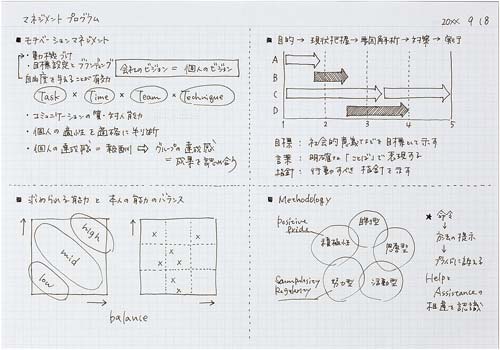 マネジメント プログラム
20XX 9 18
モチベーションマネジメント
・動機づけ
・目標設定とプランニング
自由度を与えることが有効
会社のビジョン = 個人のビジョン
Task × Time × Team × Technique
・コミュニケーションの質・対人能力
・個人の適性を適格に判断
・個人の達成感 = 報酬 ⇨ グループの達成感
= 成果を認め合う
目的 → 現状把握 → 要因解析 → 対策 → 実行
A
B
C
D
1 2 3 4 5
目標 : 社会的意義などを目標として示す
言葉 : 明確な「ことば」で表現する
指針 : 行動すべき指針を示す
求められる能力 と 本人の能力のバランス
high
mid
low
balance
Methodology
Positive
Pride
Compulsory
Regulatory
自律型
積極性
思考型
努力型
活動型
★ 命令
↓
方法の提示
↓
プライドに訴える
Helpと
Assistanceの
相違を認識